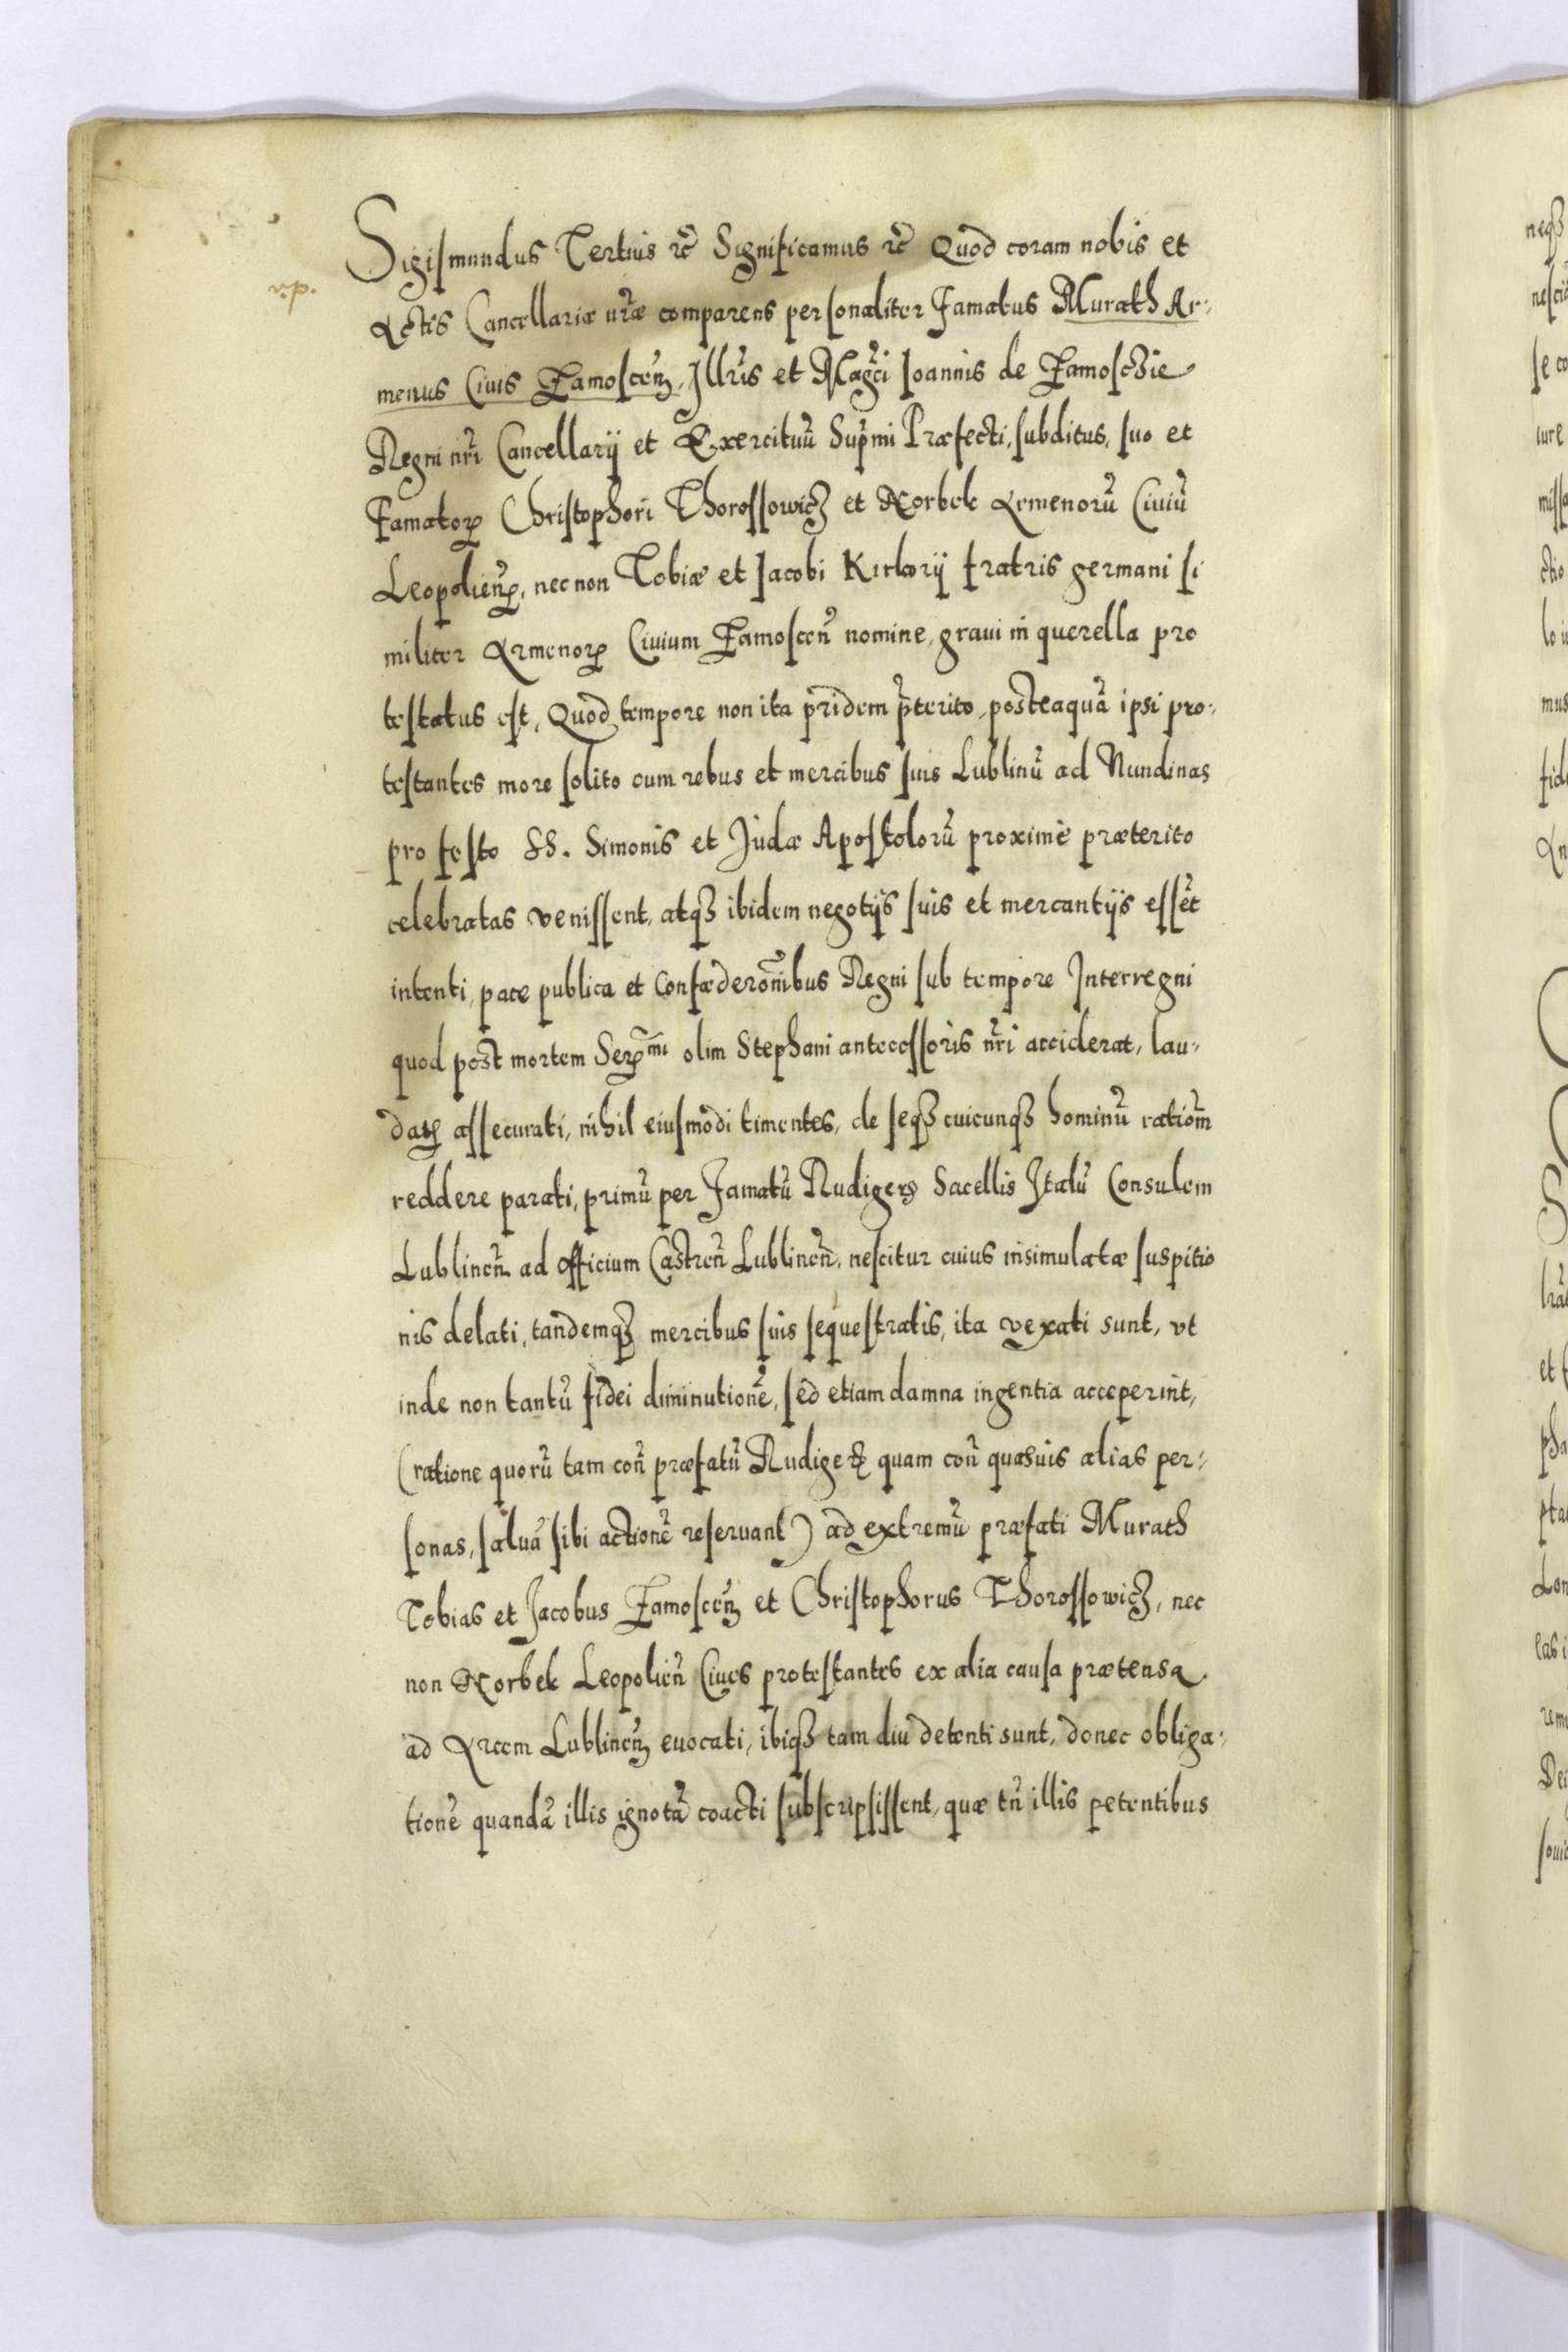 Sigismundus Tertius rc̃ Significamus rc̃ Quod coram nobis et
v.p.
Actis Cancellariæ nr̃æ comparens personaliter Famatus Murath Ar-
menus Ciuis Zamoscen̄, Illr̃is et Magc̃i Ioannis de Zamosczie
Regni nr̃i Cancellarij et Exercituũ Sup̃mi Præfecti, subditus, suo et
Famatoꝝ Christophori Thorossowicz et Norbek Armenorũ Ciuiũ
Leopolien̄, nec non Tobiæ et Jacobi Kirkorij fratris germani si
militer Armenoꝝ Ciuium Zamoscen̄ nomine, graui in querella pro
testatus est, Quod tempore non ita pridem p̃terito, posteaquã ipsi pro-
testantes more solito cum rebus et mercibus suis Lublinũ ad Nundinas
pro festo SS. Simonis et Judæ Apostolorũ proximè præterito
celebratas venissent, atqꝫ ibidem negotijs suis et mercantijs essẽt
intenti, pace publica et Confæderon̄ibus Regni sub tempore Interregni
quod post mortem Ser̃mi olim Stephani antecessoris nr̃i acciderat, lau-
datis assecurati, nihil eiusmodi timentes, de seqꝫ cuicunqꝫ hominũ ratiom̃
reddere parati, primũ per Famatũ Rudigerũ Sacellis Italũ Consulem
Lublinen̄ ad Officium Castren̄ Lublinen̄, nescitur cuius insimulatæ suspitio
nis delati, tandemqꝫ mercibus suis sequestratis, ita vexati sunt, vt
inde non tantũ fidei diminutionẽ, sed etiam damna ingentia acceperint,
(ratione quorũ tam con̄ præfatũ Rudigerũ quam con̄ quasuis alias per-
sonas, saluã sibi actionẽ reseruant) ad extremũ præfati Murath
Tobias et Jacobus Zamoscen̄ et Christophorus Thorossowicz, nec
non Norbek Leopolien̄ Ciues protestantes ex alia causa prætensa
ad Arcem Lublinen̄ euocati, ibiqꝫ tam diu detenti sunt, donec obliga-
tionẽ quandã illis ignotã coacti subscripsissent, quæ tñ illis petentibus